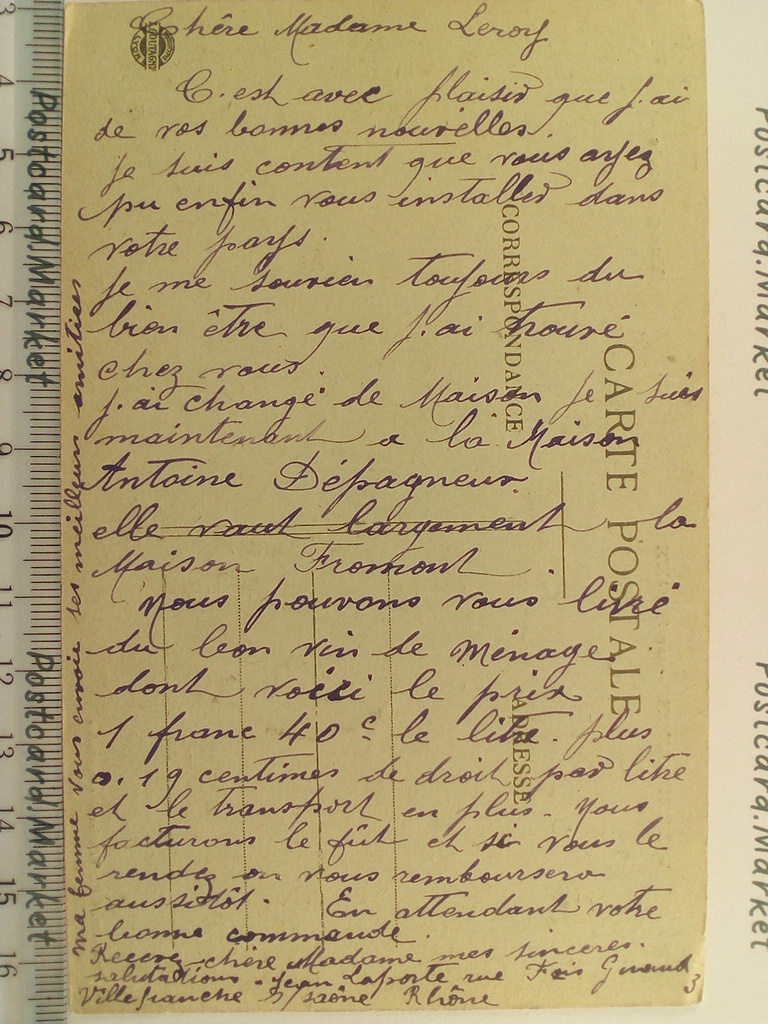 Chère Madame Leroy
C'est avec plaisir que j'ai
de vos bonnes nouvelles.
je suis content que vous ayez
pu enfin vous installer dans
votre pays.
je me souvien toujours du
bien être que j'ai trouvé
chez vous.
j'ai changé de Maison je suis
maintenant a la Maison
Antoine Dépagneux
elle vaut largement la
Maison Fromont
Nous pouvons vous livré
du bon vin de Ménage
dont voici le prix
1 franc 40 c le litre. plus
0.19 centimes de droit par litre
et le transport en plus. Nous
facturons le fût et si vous le
rendez on vous remboursera
aussitôt. En attendant votre
bonne commande.
Recevez chère Madame mes sincères.
salutations. Jean Laporte rue
Villefranche S/saône Rhône
3
ma femme vous envoie ses meilleurs amitiées
CARTE POSTALE
CORRESPONDANCE
ADRESSE
Postcard.Market
Postcard.Market
Postcard.Market
Postcard.Market
3
4
5
6
7
8
9
10
11
12
13
14
15
16